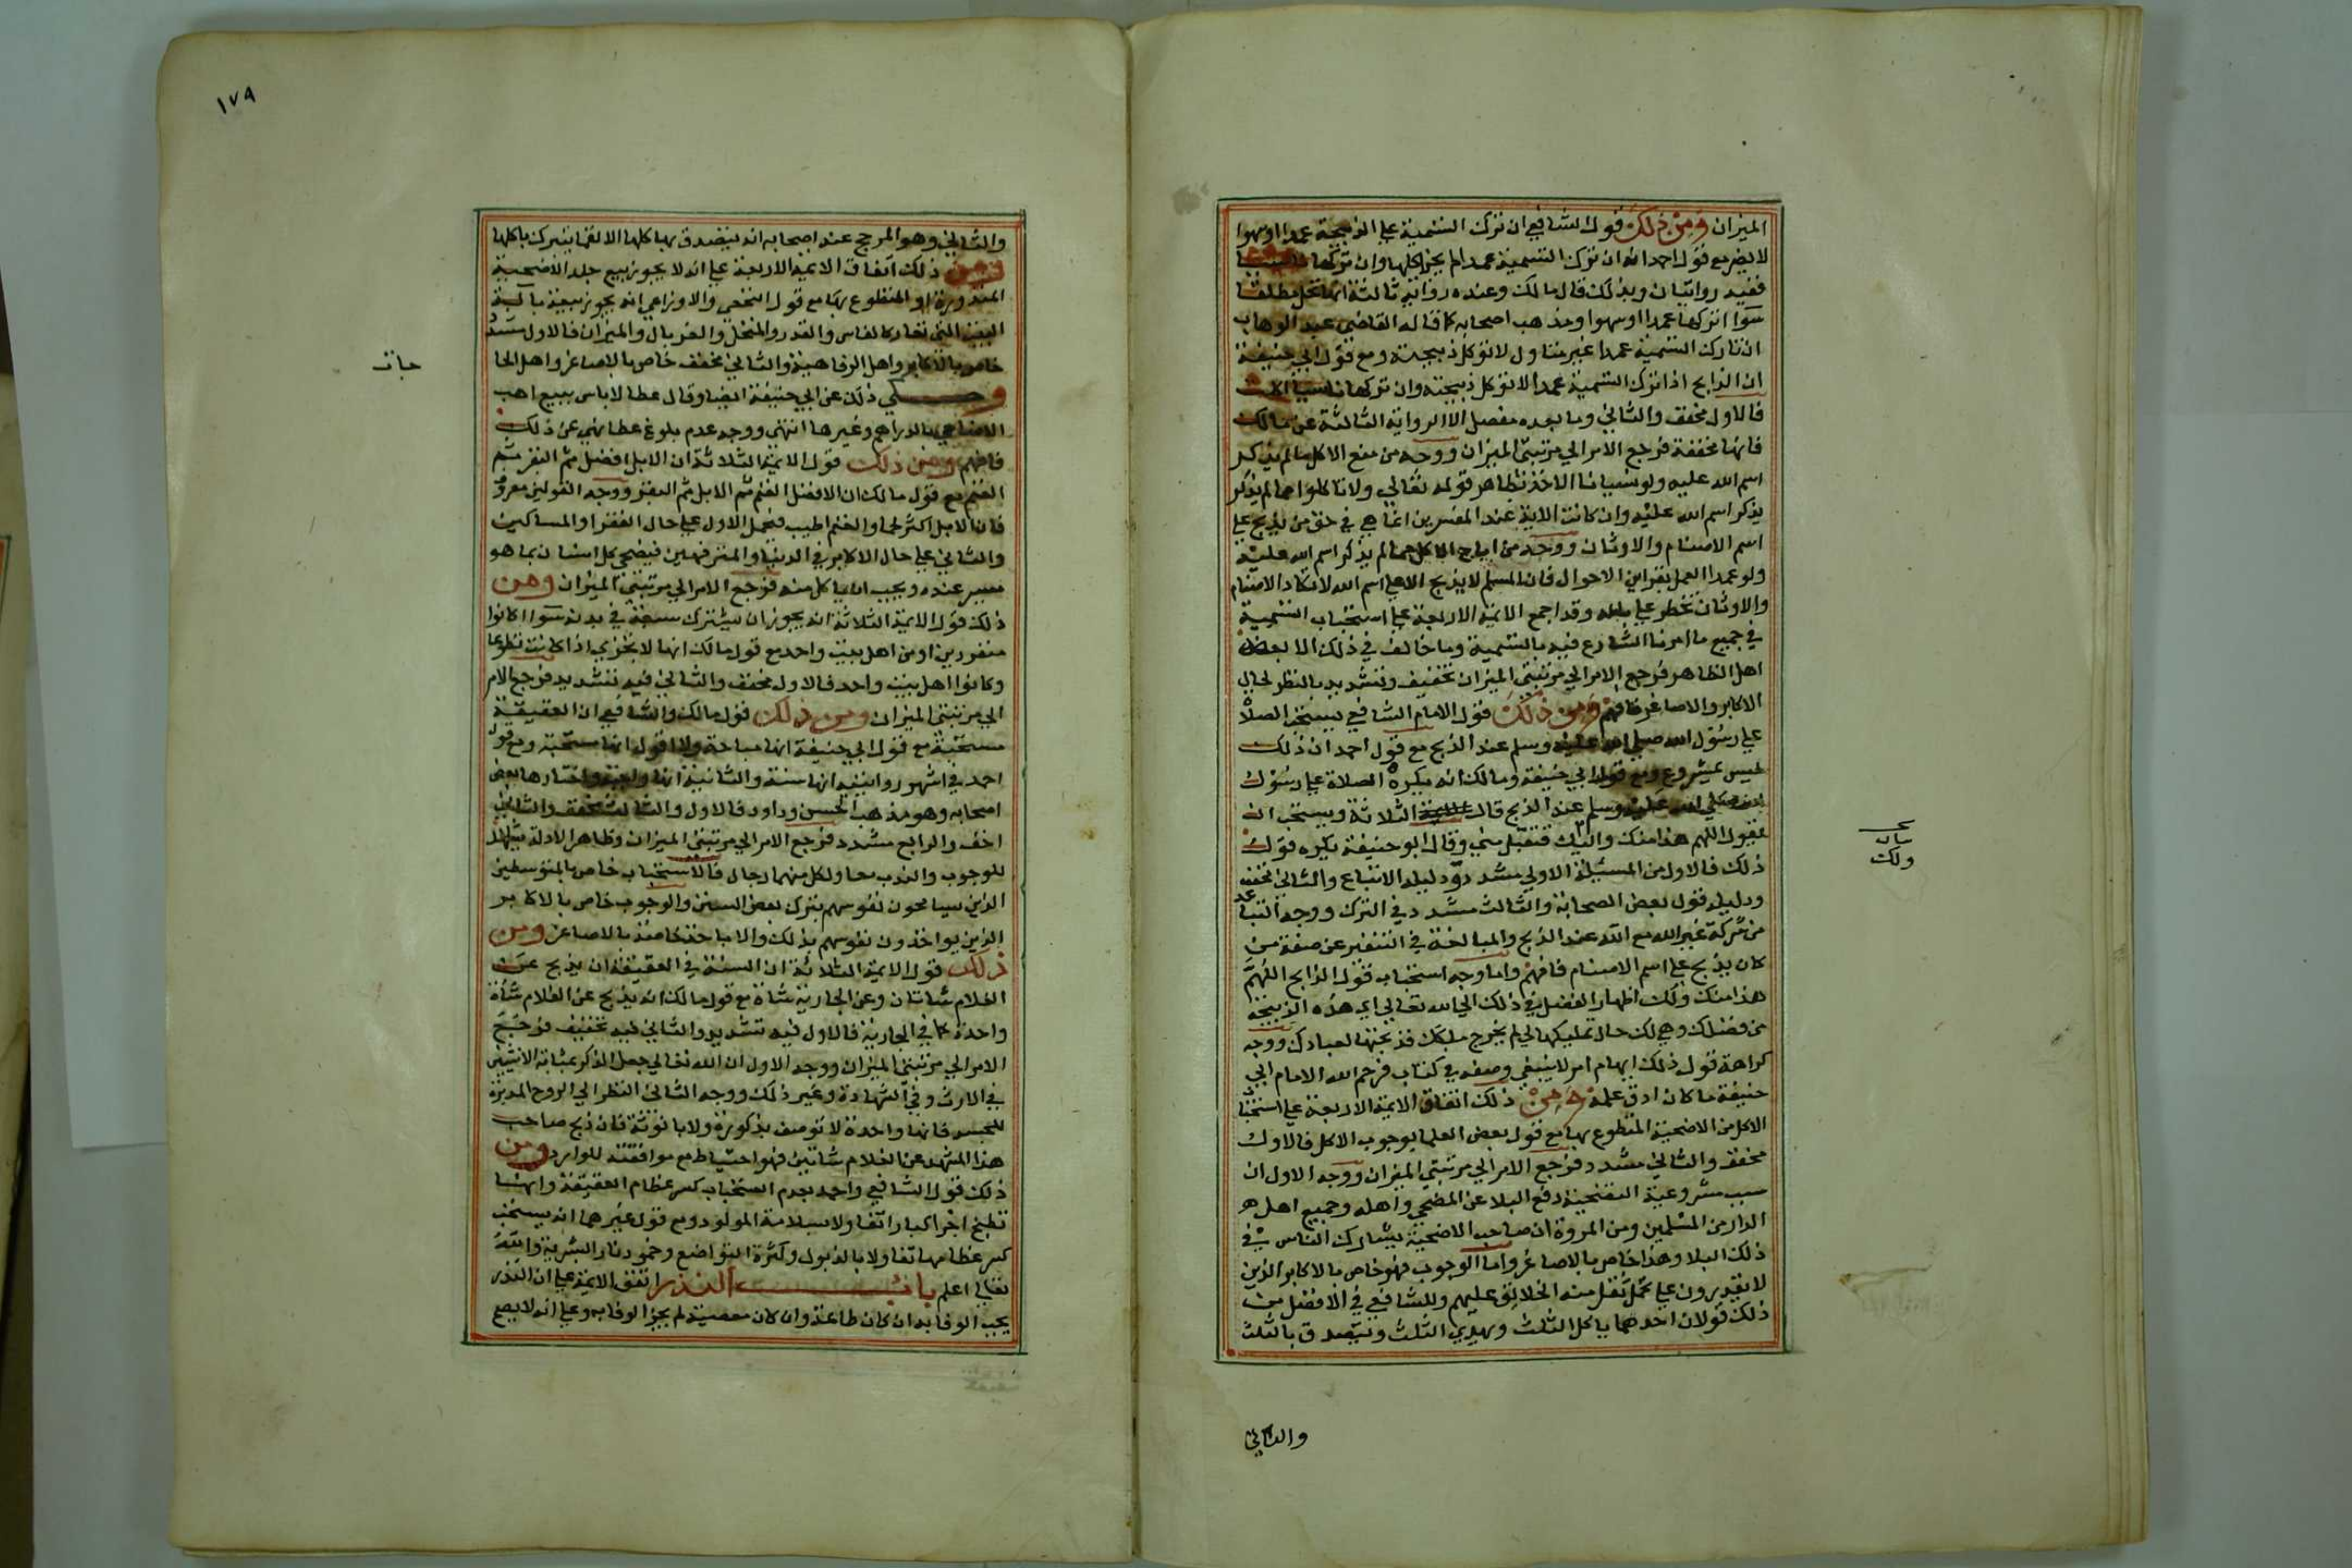 الميزان ومن ذلك قول الشافعي ان ترك التسمية علي الذبيحة عمدا اوسهوا
لايضر مع قول احمد انه ان ترك التسمية عمدا لم يجز اكلها وان تركها
ففيه روايتان وبذلك قال مالك وعنده رواية ثالثة انها تحل مطلقا
سوا تركها عمدا اوسهوا ومذهب اصحابه كا قاله القاضي عبد الوهاب
ان تارك التسمية عمدا غير متاول لاتوكل ذبيحته ومع قول ابي حنيفة
ان الذابح اذا ترك التسمية عمدا لا توكل ذبيحته وان تركها ناسيا اكلت
فالاول مخفف والثاني وما بعده مفصل الا الرواية الثالثة عن مالك
فانها مخففة فرجع الامر الي مرتبتي الميزان ووجه من منع الاكل مالم يذكر
اسم الله عليه ولو نسيانا الاخذ بظاهر قوله تعالي ولا تاكلوا مما لم يذكر
يذكر اسم الله عليه وان كانت الاية عند المفسرين انما هي في حق من يذبح علي
اسم الاصنام والاوثان ووجه من اباح الاكل مما لم يذكر اسم الله عليه
ولو عمدا العمل بقراين الاحوال فان المسلم لايذبح الا علي اسم الله لاتكاد الاصنام
والاوثان تخطر علي باله وقد اجمع الائمة الاربعة علي استحباب التسمية
في جميع ما امرنا الشارع فيه بالتسمية وما خالف في ذلك الا بعض
اهل الظاهر فرجع الامر الي مرتبتي الميزان تخفيف وتشديد بالنظر لحال
الاكابر والاصاغر فافهم ومن ذلك قول الامام الشافعي يستحب الصلاة
علي رسول الله صلي الله عليه وسلم عند الذبح مع قول احمد ان ذلك
ليس بمشروع ومع قول ابي حنيفة ومالك انه يكره الصلاة علي رسول
الله صلي الله عليه وسلم عند الذبح قال الثلاثة ويستحب ان
يقول اللهم هذا منك واليك فتقبل مني وقال ابوحنيفة يكره قول
ذلك فالاول من المسئلة الاولي مشدد ودليله الاتباع والثاني مخفف
ودليله قول بعض الصحابة والثالث مشدد في الترك ووجه التباعد
من شركة غير الله مع الله عند الذبح والمبالغة في التنفير عن صفة من
كان يذبح علي اسم الاصنام فافهم واما وجه استحباب قول الذابح اللهم
هذا منك ولك اظهار الفضل في ذلك الي الله تعالي اي هذه الذبيحة
من فضلك وهي لك حال تمليكها لي لم يخرج ملكك قذبحتها لعبادك ووجه
كراهة قول ذلك ايهام امر لاينبغي وصفه في كتاب فرحم الله الامام ابي
حنيفة ما كان ادق علمه ومن ذلك اتفاق الائمة الاربعة علي استحبا
الاكل من الاضحية المتطوع بها مع قول بعض العلما بوجوب الاكل فالاول
مخفف والثاني مشدد فرجع الامر الي مرتبتي الميزان ووجه الاول ان
سبب مشروعية التضحية دفع البلا عن المضحي واهله وجميع اهل
الدار من المسلمين ومن المروة ان صاحب الاضحية يشارك الناس في
ذلك البلا وهذا خاص بالاصاغر واما الوجوب فهو خاص بالاكابر الذين
لا يقدرون علي تحمل ثقل منة الخلائق عليهم وللشافعي في الافضل من
ذلك قولان احدهما ياكل الثلث ويهدي الثلث ويتصدق بالثلث
والثاني
ولك
١٧٩
والثاني وهو المرجح عند اصحابه انه يتصدق بها كلها الا لقما يتبرك باكلها
ومن ذلك اتفاق الائمة الاربعة علي انه لا يجوز بيع جلد الاضحية
المنذورة او المتطوع بها مع قول النخعي والاوزاعي انه يجوز بيعه بالة
البيت التي تعار كالفاس والقدر والمنخل والغربال والميزان فالاول مشدد
خاص بالاكابر واهل الرفاهية والثاني مخفف خاص بالاصاغر واهل الحا
جات
وحكي ذلك عن ابي حنيفة ايضا وقال عطا لاباس ببيع اهب
الاضاحي بالدراهم وغيرها انتهي ووجه عدم بلوغ عطا نهي عن ذلك
فافهم ومن ذلك قول الائمة الثلاثة ان الابل افضل ثم البقر ثم
الغنم مع قول مالك ان الافضل الغنم ثم الابل ثم البقر ووجه القولين معروف
فان الابل اكثر لحما والغنم اطيب فيحمل الاول علي حال الفقرا والمساكين
والثاني علي حال الاكابر في الدنيا والمترفهين فيضحي كل انسان بما هو
ميسر عنده ويحب ان ياكل منه فرجع الامر الي مرتبتي الميزان ومن
ذلك قول الائمة الثلاثة انه يجوز ان يشترك سبعة في بدنة سوا كانوا
متفردين او من اهل بيت واحد مع قول مالك انها لا تجزي اذا كانت تطوعا
وكانوا اهل بيت واحد فالاول مخفف والثاني فيه تشديد فرجع الامر
الي مرتبتي الميزان ومن ذلك قول مالك والشافعي ان العقيقة
مستحبة مع قول ابي حنيفة انها مباحة ولا اقول انها مستحبة ومع قول
احمد في اشهر روايتيه انها سنة والثانية انها واجبة واختارها بعض
اصحابه وهو مذهب الحسن وداود فالاول والثالث مخفف والثاني
اخف والرابع مشدد فرجع الامر الي مرتبتي الميزان وظاهر الادلة يشهد
للوجوب والندب معا ولكل منهما رجال فالاستحباب خاص بالمتوسطين
الذين يسامحون نفوسهم بترك بعض السنن والوجوب خاص بالاكابر
الذين يواخذون نفوسهم بذلك والاباحة خاصة بالاصاغر ومن
ذلك قول الائمة الثلاثة ان السنة في العقيقة ان يذبح عن
الغلام شاتان وعن الجارية شاة مع قول مالك انه يذبح عن الغلام شاة
واحدة كما في الجارية فالاول فيه تشديد والثاني فيه تخفيف فرجع
الامر الي مرتبتي الميزان ووجه الاول ان الله تعالي جعل الذكر بمثابة الانثيين
في الارث وفي الشهادة وغير ذلك ووجه الثاني النظر الي الروح المدبرة
للجسد فانها واحدة لا توصف بذكورة ولا بانوثة فان ذبح صاحب
هذا المشهد عن الغلام شاتين فهو احتياط مع موافقته للوارد ومن
ذلك قول الشافعي واحمد بعدم استحباب كسر عظام العقيقة وانها
تطبخ اجزا كبارا تفاولا بسلامة المولود ومع قول غيرهما انه يستحب
كسر عظامها تفاولا بالذبول وكثرة التواضع وخمود نار البشرية والله
تعالي اعلم باب النذر اتفق الائمة علي ان النذر
يجب الوفا به ان كان طاعة وان كان معصية لم يجز الوفا به وعلي انه لا يصح